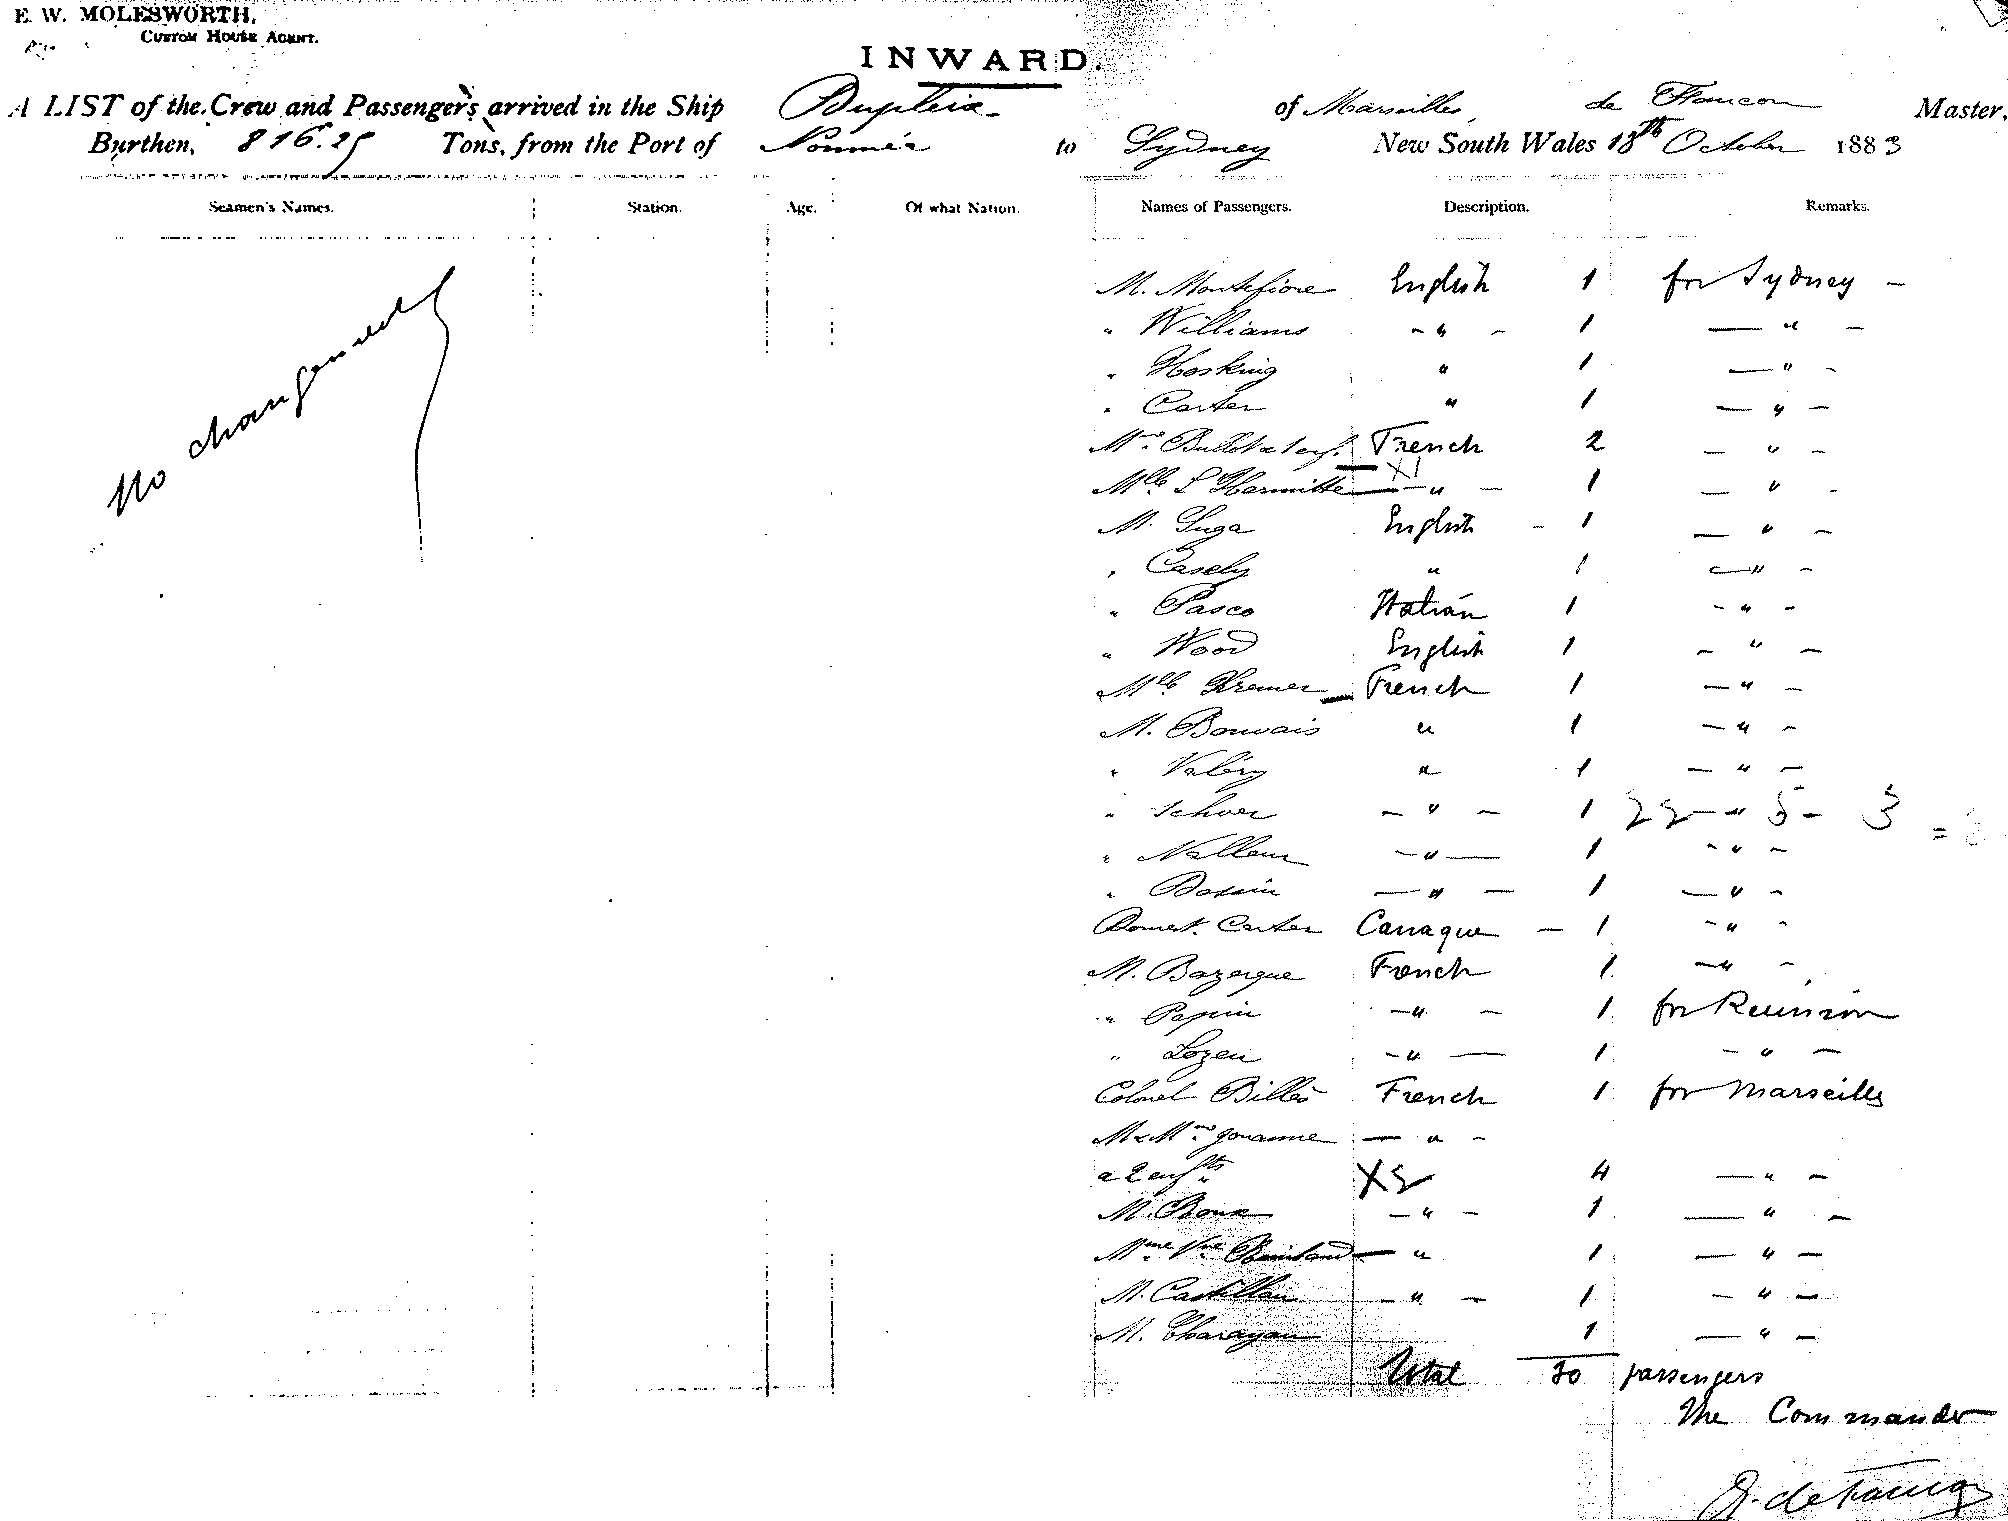 E. W. MOLESWORTH,
CUSTOM HOUSE AGENT.
INWARD.
A LIST of the Crew and Passengers arrived in the Ship Dupleix of Marseilles, de Faucon Master,
Burthen, 816.25 Tons, from the Port of Nouméa to Sydney New South Wales 18th October 1883
Seamen's Names. Station. Age. Of what Nation. Names of Passengers. Description. Remarks.
No changement
M. Montefiore English 1 for Sydney -
" Williams - " - 1 — " -
" Hosking " 1 — " -
" Carter " 1 — " -
Mme French 2 - " -
Mlle L'Hermitte — " - 1 — " -
M. Luga English - 1 — " -
" Casely " 1 — " -
" Pasco Italian 1 - " -
" Wood English 1 - " -
Mlle Kremer French 1 — " -
M. Bouvais " 1 — " -
" Valéry " 1 — " -
" Schoer - " - 1 22 — " 5 - 3 =
" - " — 1 - " -
" — " - 1 — " -
Domest. Carter Canaque - 1 - " -
M. Bazergue French 1 — " -
" Papin — " - 1 for Reunion
" Lozen - " — 1 - " -
Colonel Billès French 1 for Marseilles
M & Mme Jouanne — " -
& 2 enfts X2 4 — " -
M. Roux - " - 1 — " -
Mme Vve — " 1 — " -
M. Castillan - " - 1 - " -
M. Charayau 1 — " -
Total 30 passengers
The Commander